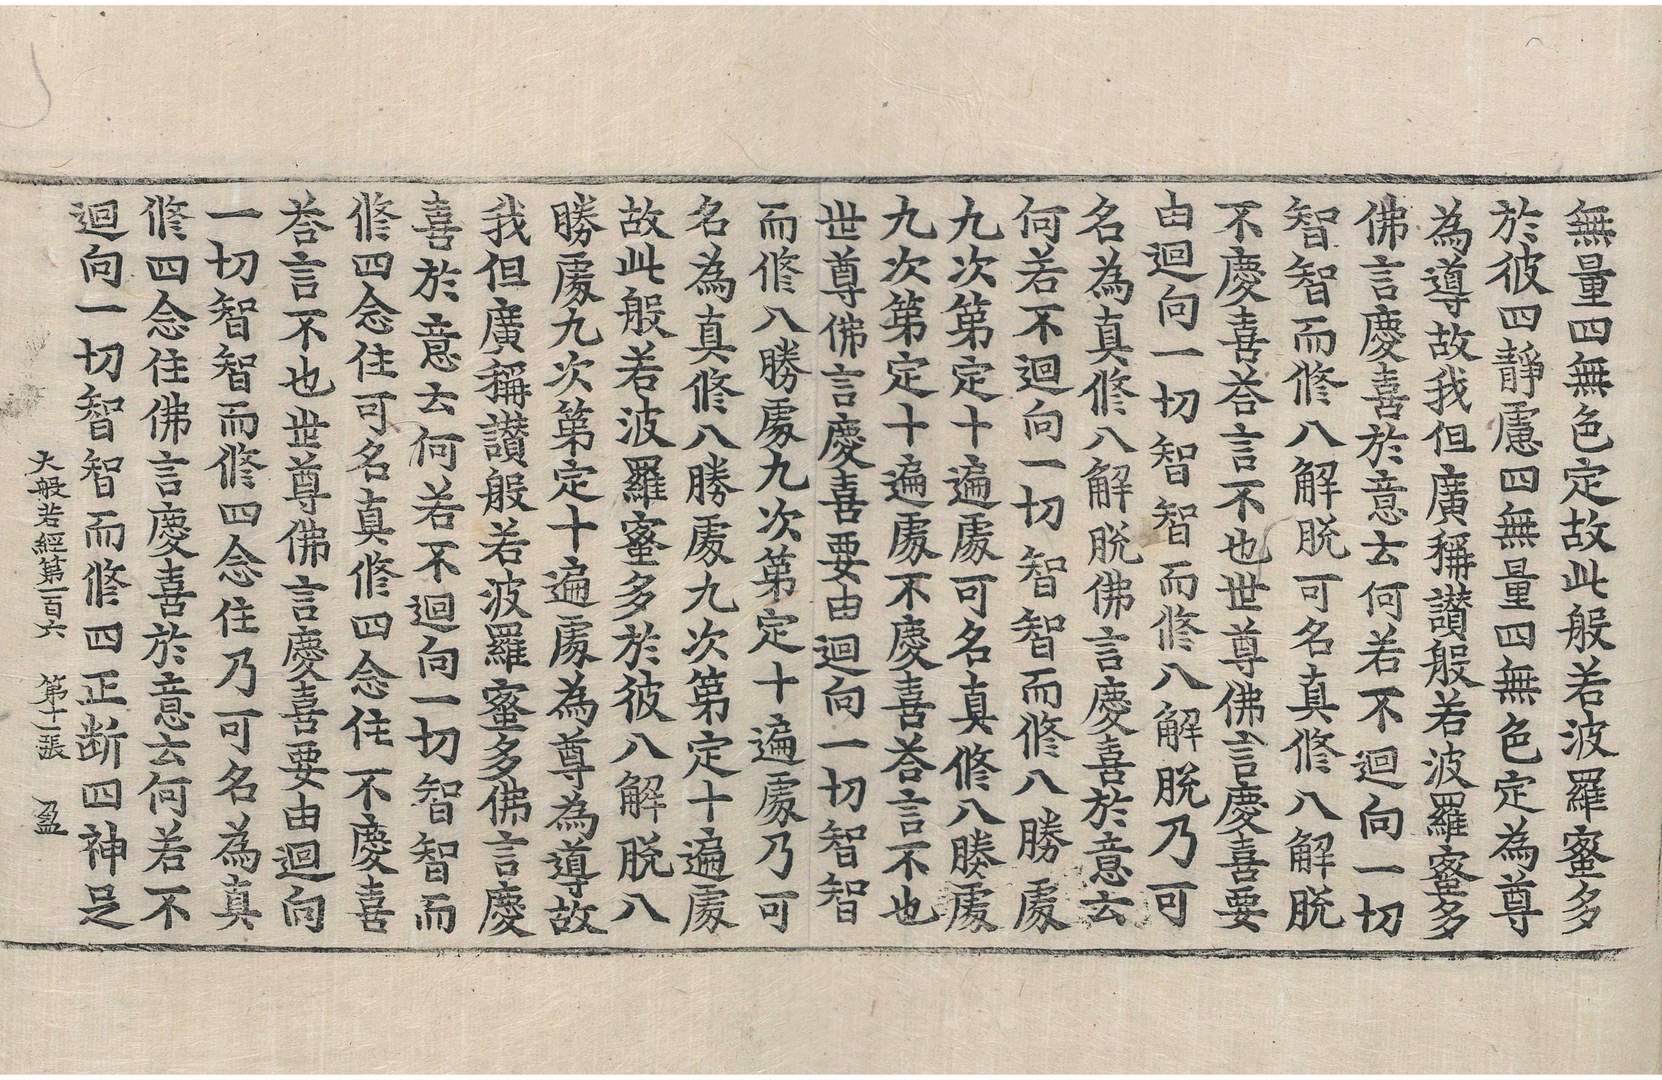 無量四無色定故此般若波羅蜜多
於彼四靜慮四無量四無色定為尊
為導故我但廣稱讚般若波羅蜜多
佛言慶喜於意云何若不迴向一切
智智而修八解脫可名真修八解脫
不慶喜荅言不也世尊佛言慶喜要
由迴向一切智智而修八解脫乃可
名為真修八解脫佛言慶喜於意云
何若不迴向一切智智而修八勝處
九次第定十遍處可名真修八勝處
九次第定十遍處不慶喜荅言不也
世尊佛言慶喜要由迴向一切智智
而修八勝處九次第定十遍處乃可
名為真修八勝處九次第定十遍處
故此般若波羅蜜多於彼八解脫八
勝處九次第定十遍處為尊為導故
我但廣稱讚般若波羅蜜多佛言慶
喜於意云何若不迴向一切智智而
修四念住可名真修四念住不慶喜
荅言不也世尊佛言慶喜要由迴向
一切智智而修四念住乃可名為真
修四念住佛言慶喜於意云何若不
迴向一切智智而修四正断四神足
大般若經第一百六 第十一張 盈